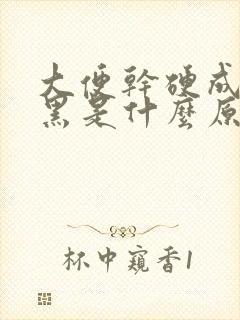 大便幹硬成
黑是什麼原
杯中窺香1